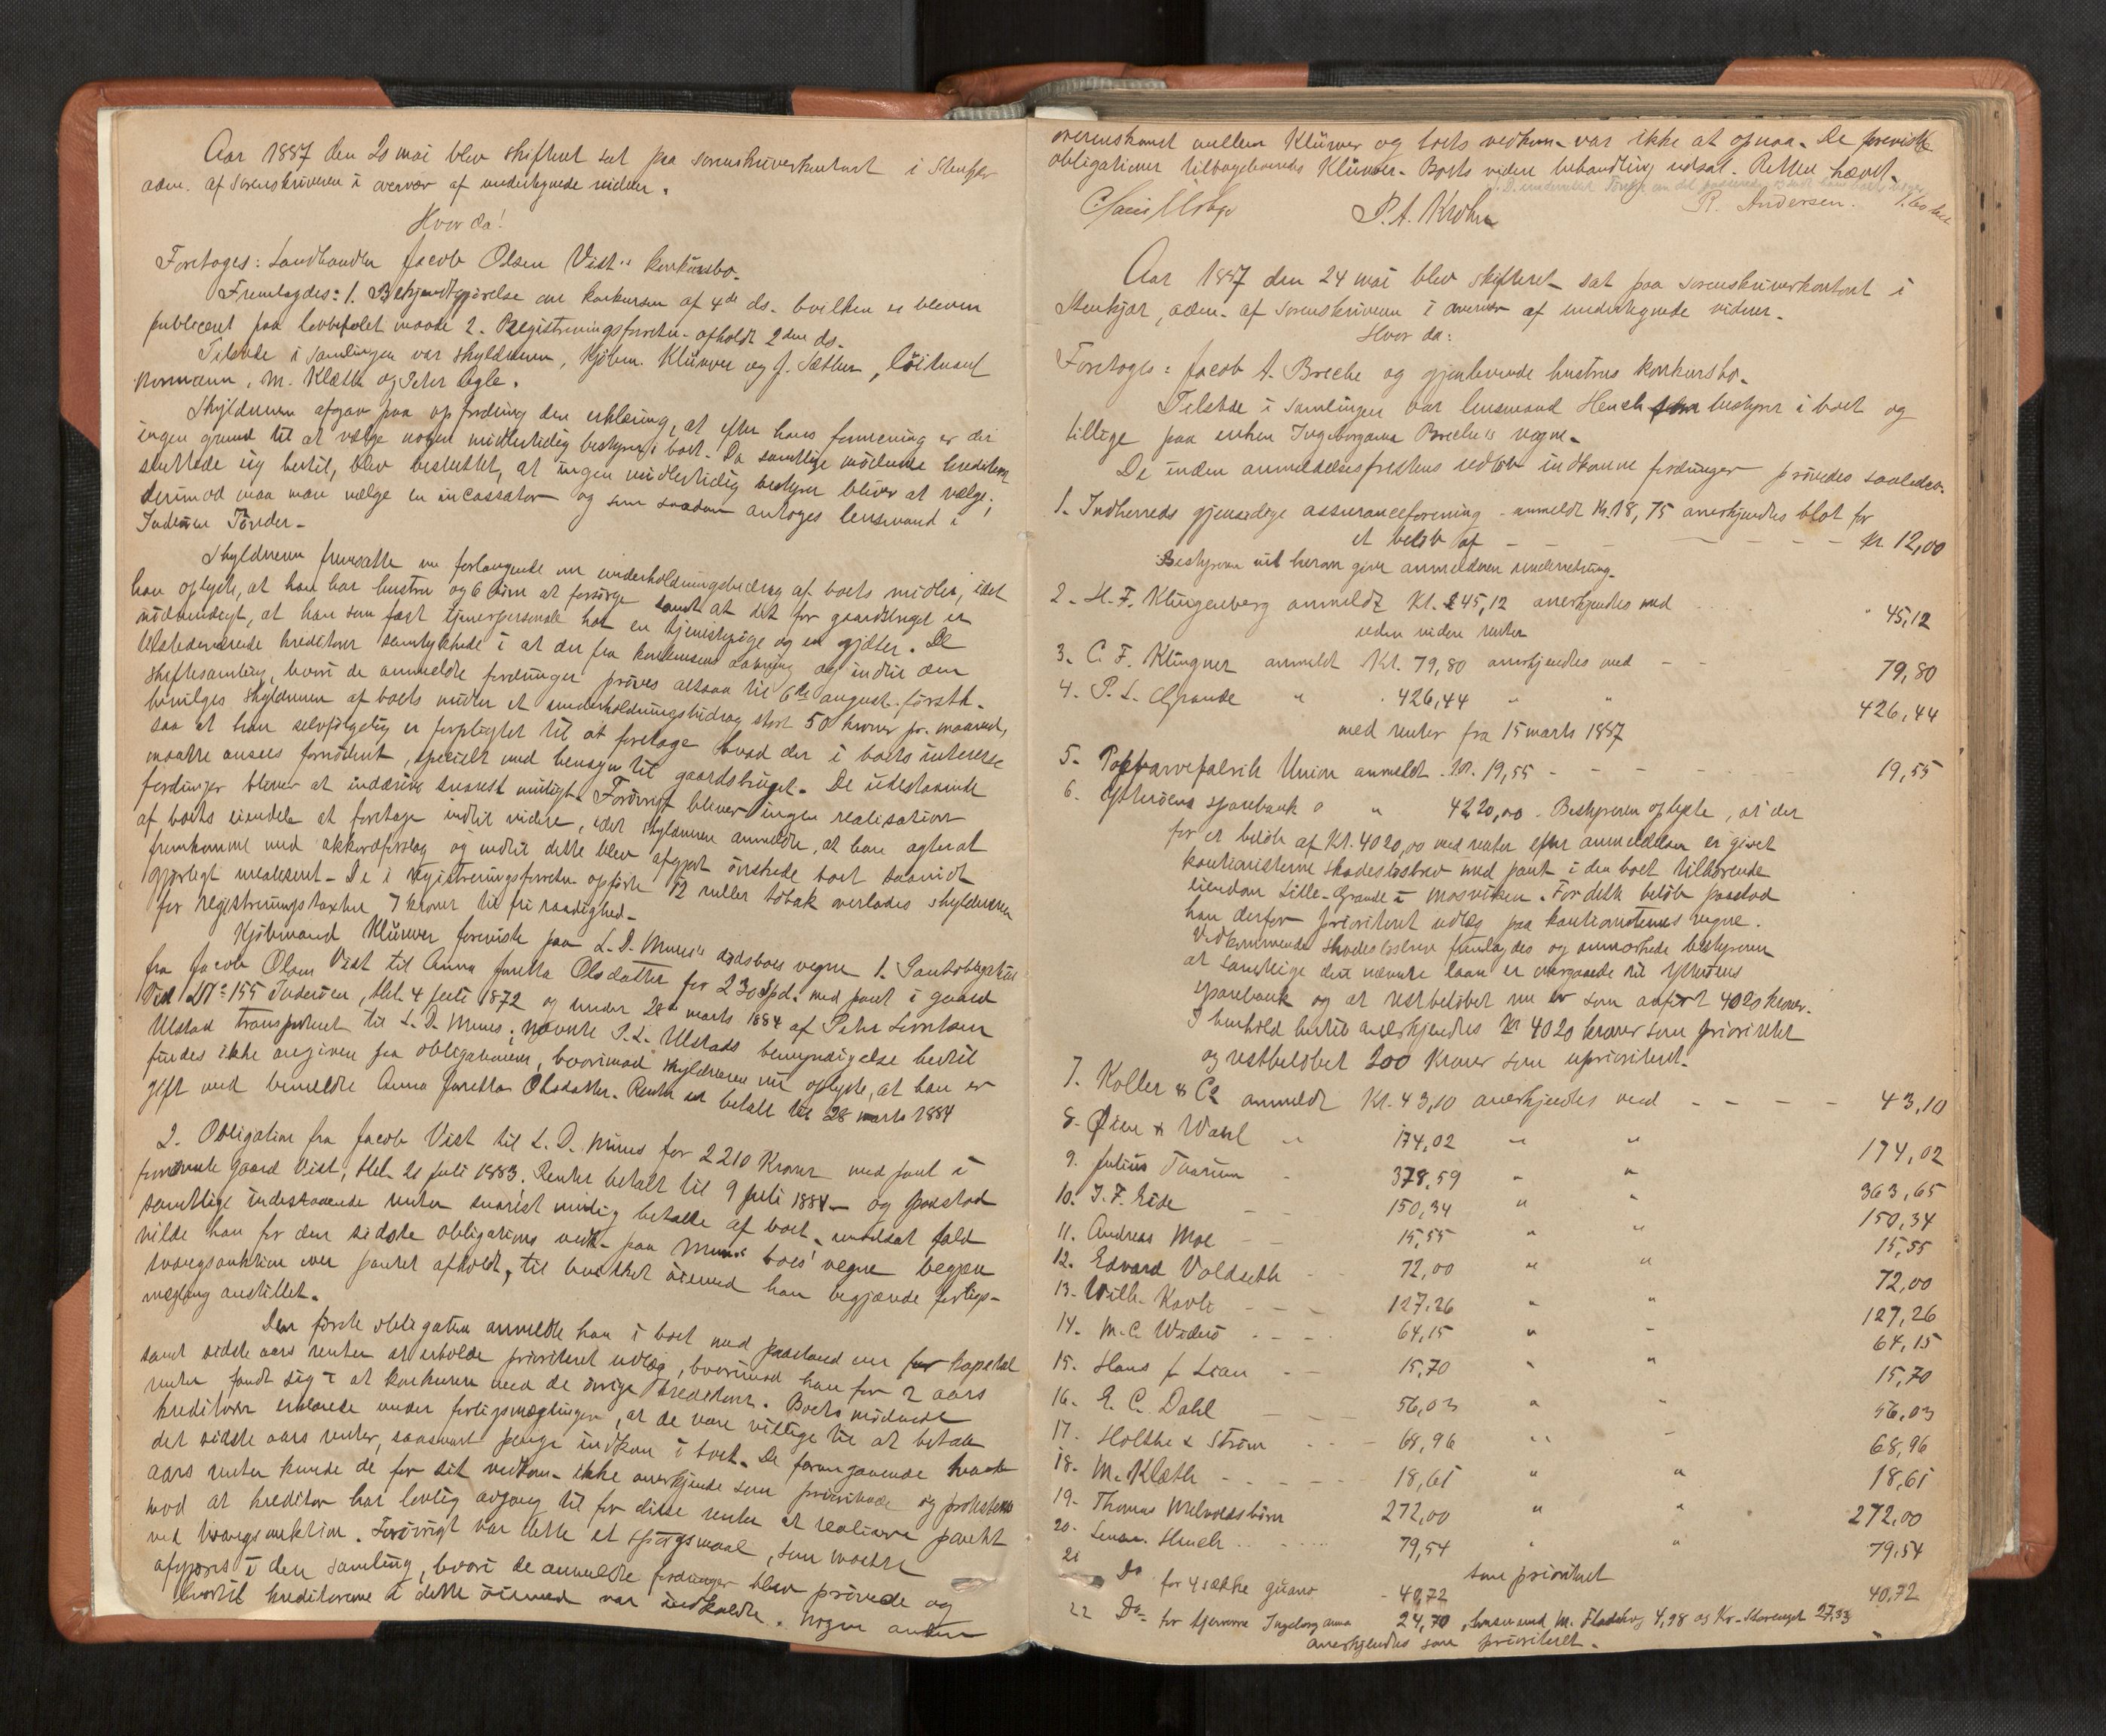 Aar 1887 den 20 mai blev skifteret sat paa sorenskriverkontoret i Stenkjær
adm. af sorenskriveren i overvær af undertegnede vidner.
Hvor da!
Foretoges: Landhandler Jacob Olsen Vist's konkursbo.
Fremlagdes: 1. Bekjendtgjørelse om konkursen af 4de ds. hvilken er bleven
publiceret paa lovbefalet maade 2. Registreringsforretn. afholdt 2den ds.
Tilstede i samlingen var skyldneren, kjøbm. Klüwer og J. Sæther, løitnant
Normann, M. Klæth og Peter Aigle.
Skyldneren afgav paa opfordring den erklæring, at efter hans formening er der
ingen grund til at vælge nogen midlertidig bestyrer i boet. Da samtlige mødende kreditorer
sluttede sig hertil, blev besluttet, at ingen midlertidig bestyrer bliver at vælge;
derimod maa man vælge en incassator og som saadan antoges lensmand i
Inderøen Tønder.
Skyldneren fremsatte nu forlangende om underholdningsbidrag af boets midler, idet
han oplyste, at han har hustru og 6 børn at forsørge samt at det for gaardsbruget er
nødvendigt, at han som fast tjenerpersonale har en tjenestepige og en gjæter. De
tilstedeværende kreditorer samtykkede i at der fra konkursens aabning og indtil den
skiftesamling, hvori de anmeldte fordringer prøves altsaa til 6te august førstk.
bevilges skyldneren af boets midler et underholdningsbidrag stort 50 kroner pr. maaned,
saa at han selvfølgelig er forpligtet til at foretage hvad der i boets interesse
maatte ansees fornødent, specielt med hensyn til gaardsbruget. De udestaaende
fordringer bliver at inddrive snarest muligt. Forøvrigt bliver ingen realisation
af boets eiendele at foretage indtil videre, idet skyldneren anmeldte, at han agter at
fremkomme med akkordforslag og indtil dette blev afgjort ønskede boet saavidt
gjørligt urealiseret. De i registreringsforretn. opførte 12 ruller tobak overlodes skyldneren
for registreringstaxten 7 kroner til fri raadighed.
Kjøbmand Klüwer foreviste paa L. D. Muus's dødsboes vegne 1. Pantobligation
fra Jacob Olsen Vist til Anna Jonetta Olsdatter for 230 Spd. med pant i gaard
Vist LNo 155 Inderøen, thl. 4 juli 1872 og under 28de marts 1884 af Peter Lorntsen
Ulstad transporteret til L. D. Muus; nævnte P. L. Ulstads bemyndigelse hertil
findes ikke angiven paa obligationen, hvorimod skyldneren nu oplyste, at han er
gift med bemeldte Anna Jonetta Olsdatter. Renter er betalt til 28 marts 1884
2. Obligation fra Jacob Vist til L. D. Muus for 2210 Kroner med pant i
fornævnte gaard Vist, thl. 21 juli 1883. Renter betalt til 9 juli 1884 og paastod
samtlige indestaaende renter snarest mulig betalte af boet, modsat fald
vilde han for den sidste obligations vedk. paa Muus's boes vegne begjære
tvangsauktion over pantet afholdt, til hvilket øiemed han begjærede forligs-
mægling anstillet.
Den første obligation anmeldte han i boet med paastand om for kapital
samt sidste aars renter at erholde prioriteret udlæg, hvorimod han for 2 aars
renter fandt sig i at konkurere med de øvrige kreditorer. Boets mødende
kreditorer erklærede under forligsmæglingen, at de vare villige til at betale
det sidste aars renter, saasnart penge indkom i boet. De foregaaende
aars renter kunde de for sit vedkom. ikke anerkjende som prioriterede og protesterede
mod at kreditor har lovlig adgang til for disse renter at realisere pantet
ved tvangsauktion. Forøvrigt var dette et spørgsmaal, som maatte
afgjøres i den samling, hvori de anmeldte fordringer blev prøvede og
hvortil kreditorerne i dette øiemed var indkaldte. Nogen anden
overenskomst mellem Klüwer og boets vedkom. var ikke at opnaa. De foreviste
obligationer tilbageleveredes Klüwer. Boets videre behandling udsat. Retten hævet.
P. A. Krohn R. Andersen.
Aar 1887 den 24 mai blev skifteret sat paa sorenskriverkontoret i
Stenkjær, adm. af sorenskriveren i overvær af undertegnede vidner.
Hvor da:
Foretoges: Jacob A. Breche og gjenlevende hustrus konkursbo.
Tilstede i samlingen var lensmand Hench som bestyrer i boet og
tillige paa enken Ingeborganna Breche's vegne.
De inden anmeldelsesfristens udløb indkomne fordringer prøvedes saaledes.
1. Indherreds gjensidige assuranceforening - anmeldt Kr. 18,75 anerkjendtes blot for
et beløb af - - - - - - - Kr. 12,00
Bestyreren vil herom give anmelderen underretning.
2. H. F. Klingenberg anmeldt Kr. 245,12 anerkjendtes med " 45,12
uden videre renter
3. C. F. Klingner anmeldt Kr. 79,80 anerkjendtes med - - 79,80
4. P. L. Grande " 426,44 " " 426,44
med renter fra 15 marts 1887
5. Papvarefabrik Union anmeldt Kr. 19,55 - - - - 19,55
6. Ytterøens sparebank " " 4220,00. Bestyreren oplyste, at der
for et beløb af Kr. 4020,00 med renter efter anmeldelsen er givet
kautionisterne skadesløsbrev med pant i den boet tilhørende
eiendom Lille-Grande i Mosviken. For dette beløb paastod
han derfor prioriteret udlæg paa kautionisternes vegne.
Vedkommende skadesløsbrev fremlagdes og anmærkede bestyreren
at samtlige deri nævnte laan er overgaaede til Ytterøens
sparebank og at restbeløbet nu er som anført 4020 kroner.
I henhold hertil anerkjendtes Kr 4020 kroner som prioriteret
og restbeløbet 200 Kroner som uprioriteret.
7. Koller & Co anmeldt Kr. 43,10 anerkjendtes med - - - - 43,10
8. Øien & Wahl " 174,02 " " 174,02
9. Julius Thorsen - 378,59 " " 363,65
10. J. F. Eide - - 150,34 " " 150,34
11. Andreas Moe - - 15,55 " " 15,55
12. Edvard Voldseth - - 72,00 " " 72,00
13. Wilh. Kavli - - - 127,26 " " 127,26
14. M. C. Widerø - - - - 64,15 " - 64,15
15. Hans J. Lian - - 15,70 " " 15,70
16. E. C. Dahl - - - 56,03 " " 56,03
17. Holthe & Strøm - - - 68,96 " - 68,96
18. M. Klæth - - - - - 18,61 " " 18,61
19. Thomas 272,00 " " 272,00
20. Lensm. Hench - - - - 79,54 " " 79,54
21 Do for 4 sække guano - 40,72 som prioriteret 40,72
22 Do for tjenerne Ingeborganna 24,70, M. 4,98 og Kr. 27,33
anerkjendtes som prioriteret.